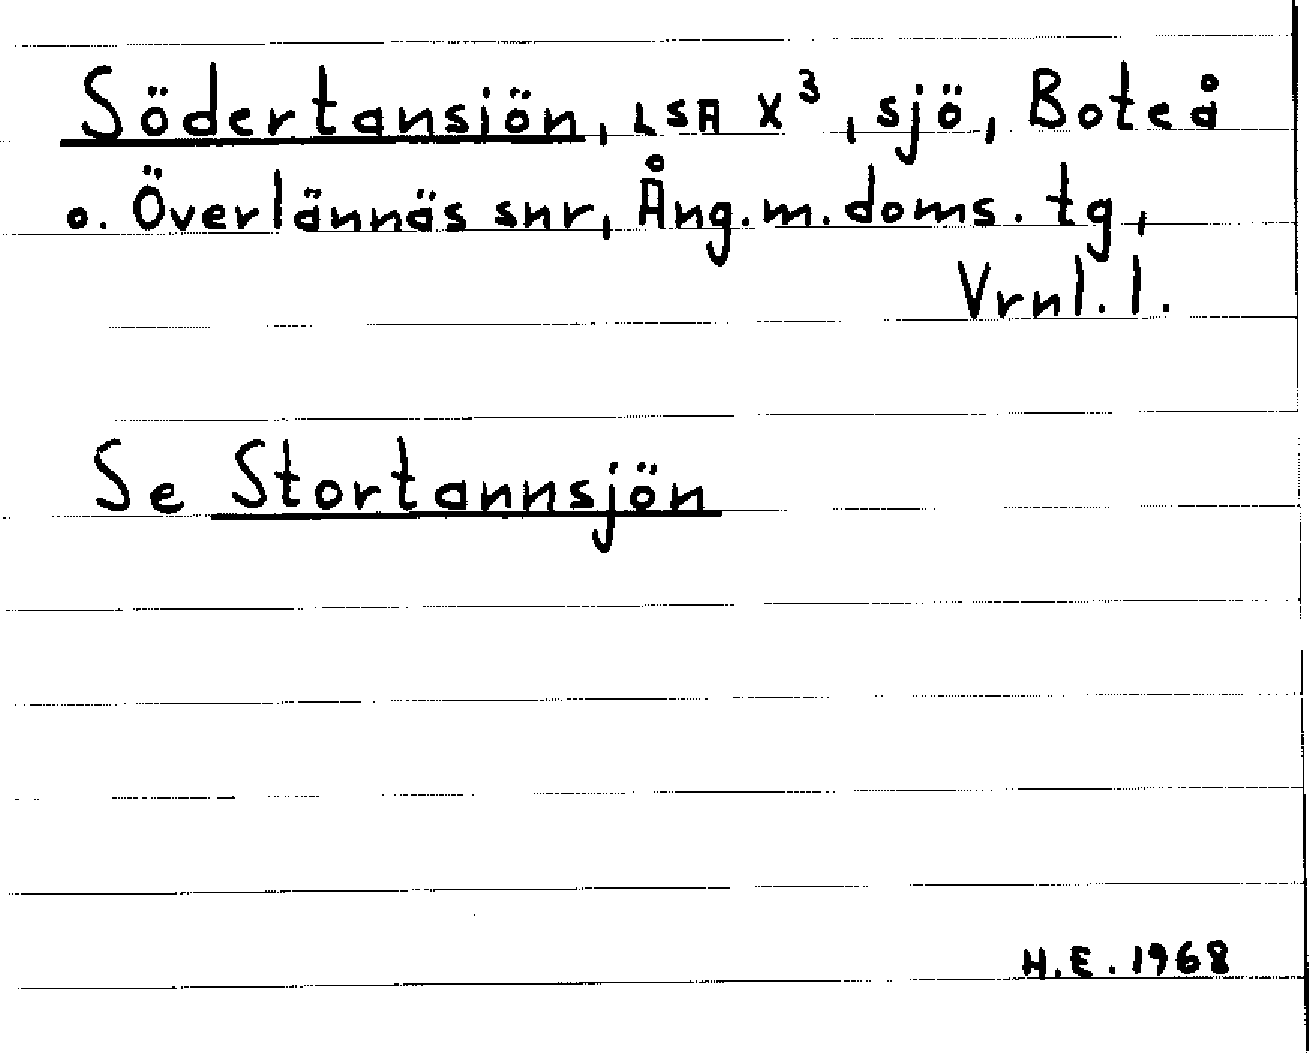 Södertansiön, LSA X³, sjö, Boteå
o. Överlännäs snr, Ång.m.doms.tg,
Vrnl.l.
Se Stortannsjön
H.E. 1968